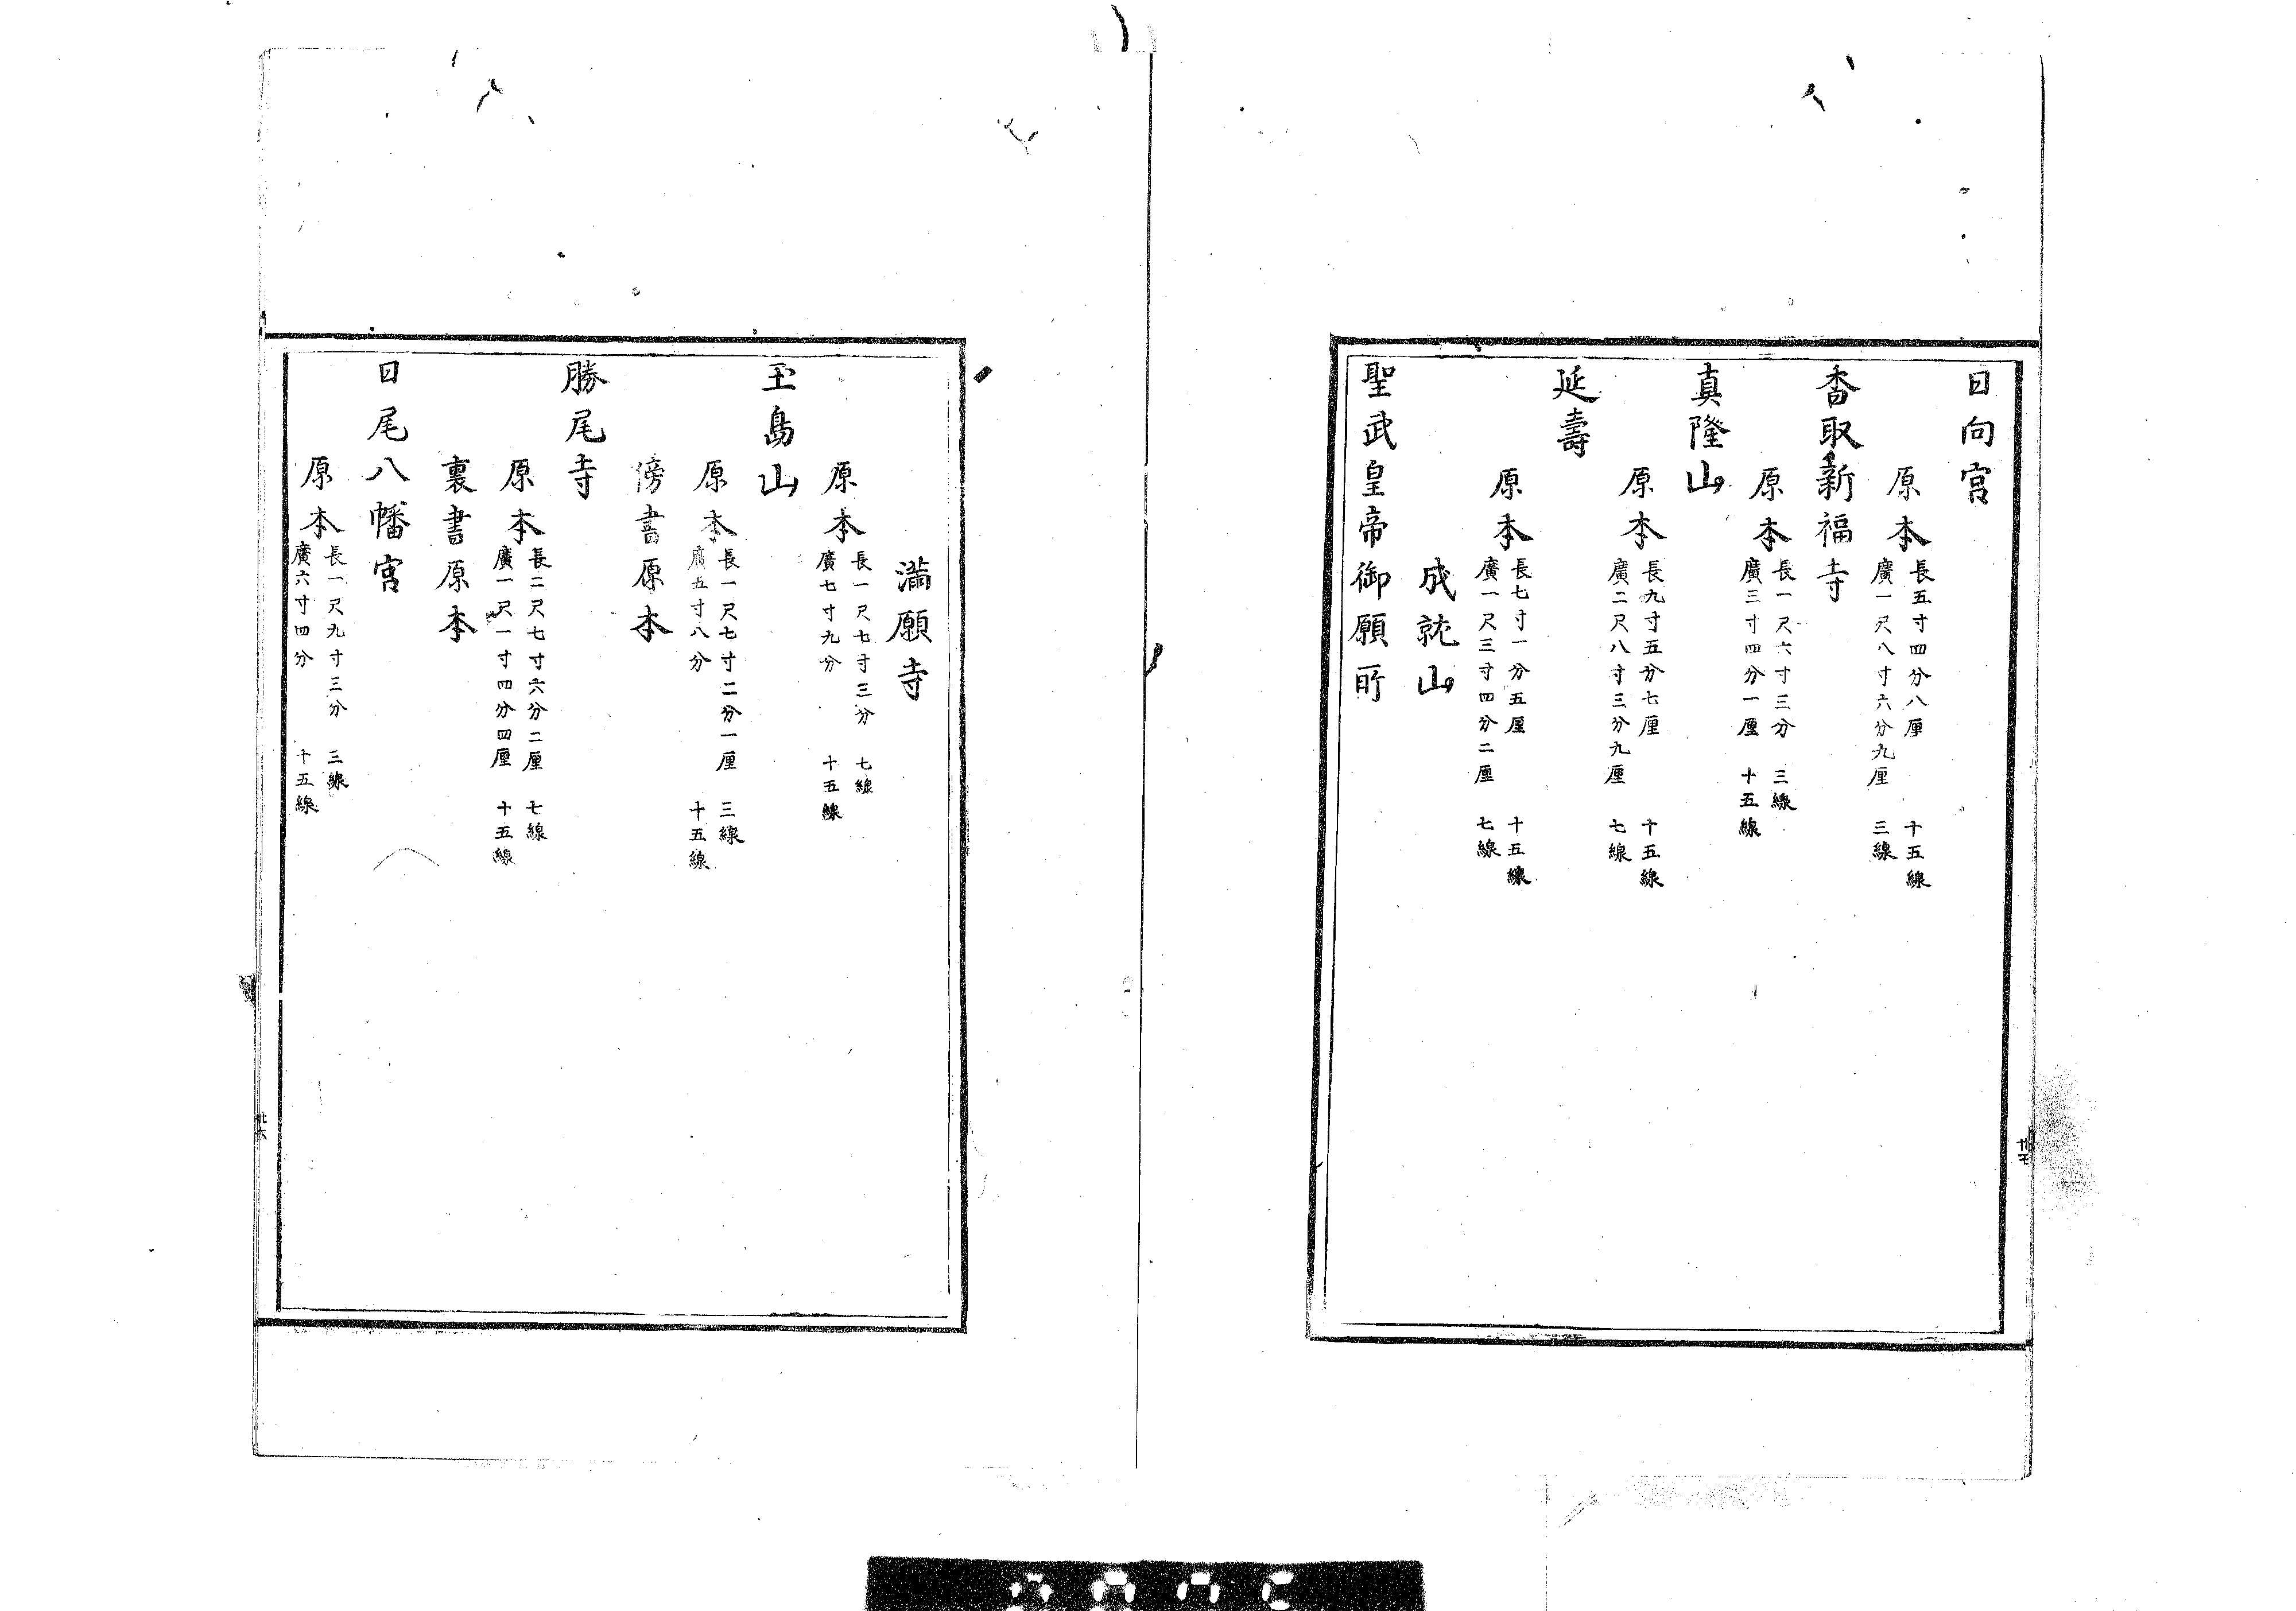 日向宮
原本長五寸四分八厘 十五線
廣一尺八寸六分九厘 三線
香取新福寺
原本長一尺六寸三分 三線
廣三寸四分一厘 十五線
真隆山
原本長九寸五分七厘 十五線
廣二尺八寸三分九厘 七線
延壽
原本長七寸一分五厘 十五線
廣一尺三寸四分二厘 七線
成就山
聖武皇帝御願所
滿願寺
原本長一尺七寸三分 七線
廣七寸九分 十五線
玉島山
原本長一尺七寸二分一厘 三線
廣五寸八分 十五線
傍書原本
勝尾寺
原本長二尺七寸六分二厘 七線
廣一尺一寸四分四厘 十五線
裏書原本
日尾八幡宮
原本長一尺九寸三分 三線
廣六寸四分 十五線